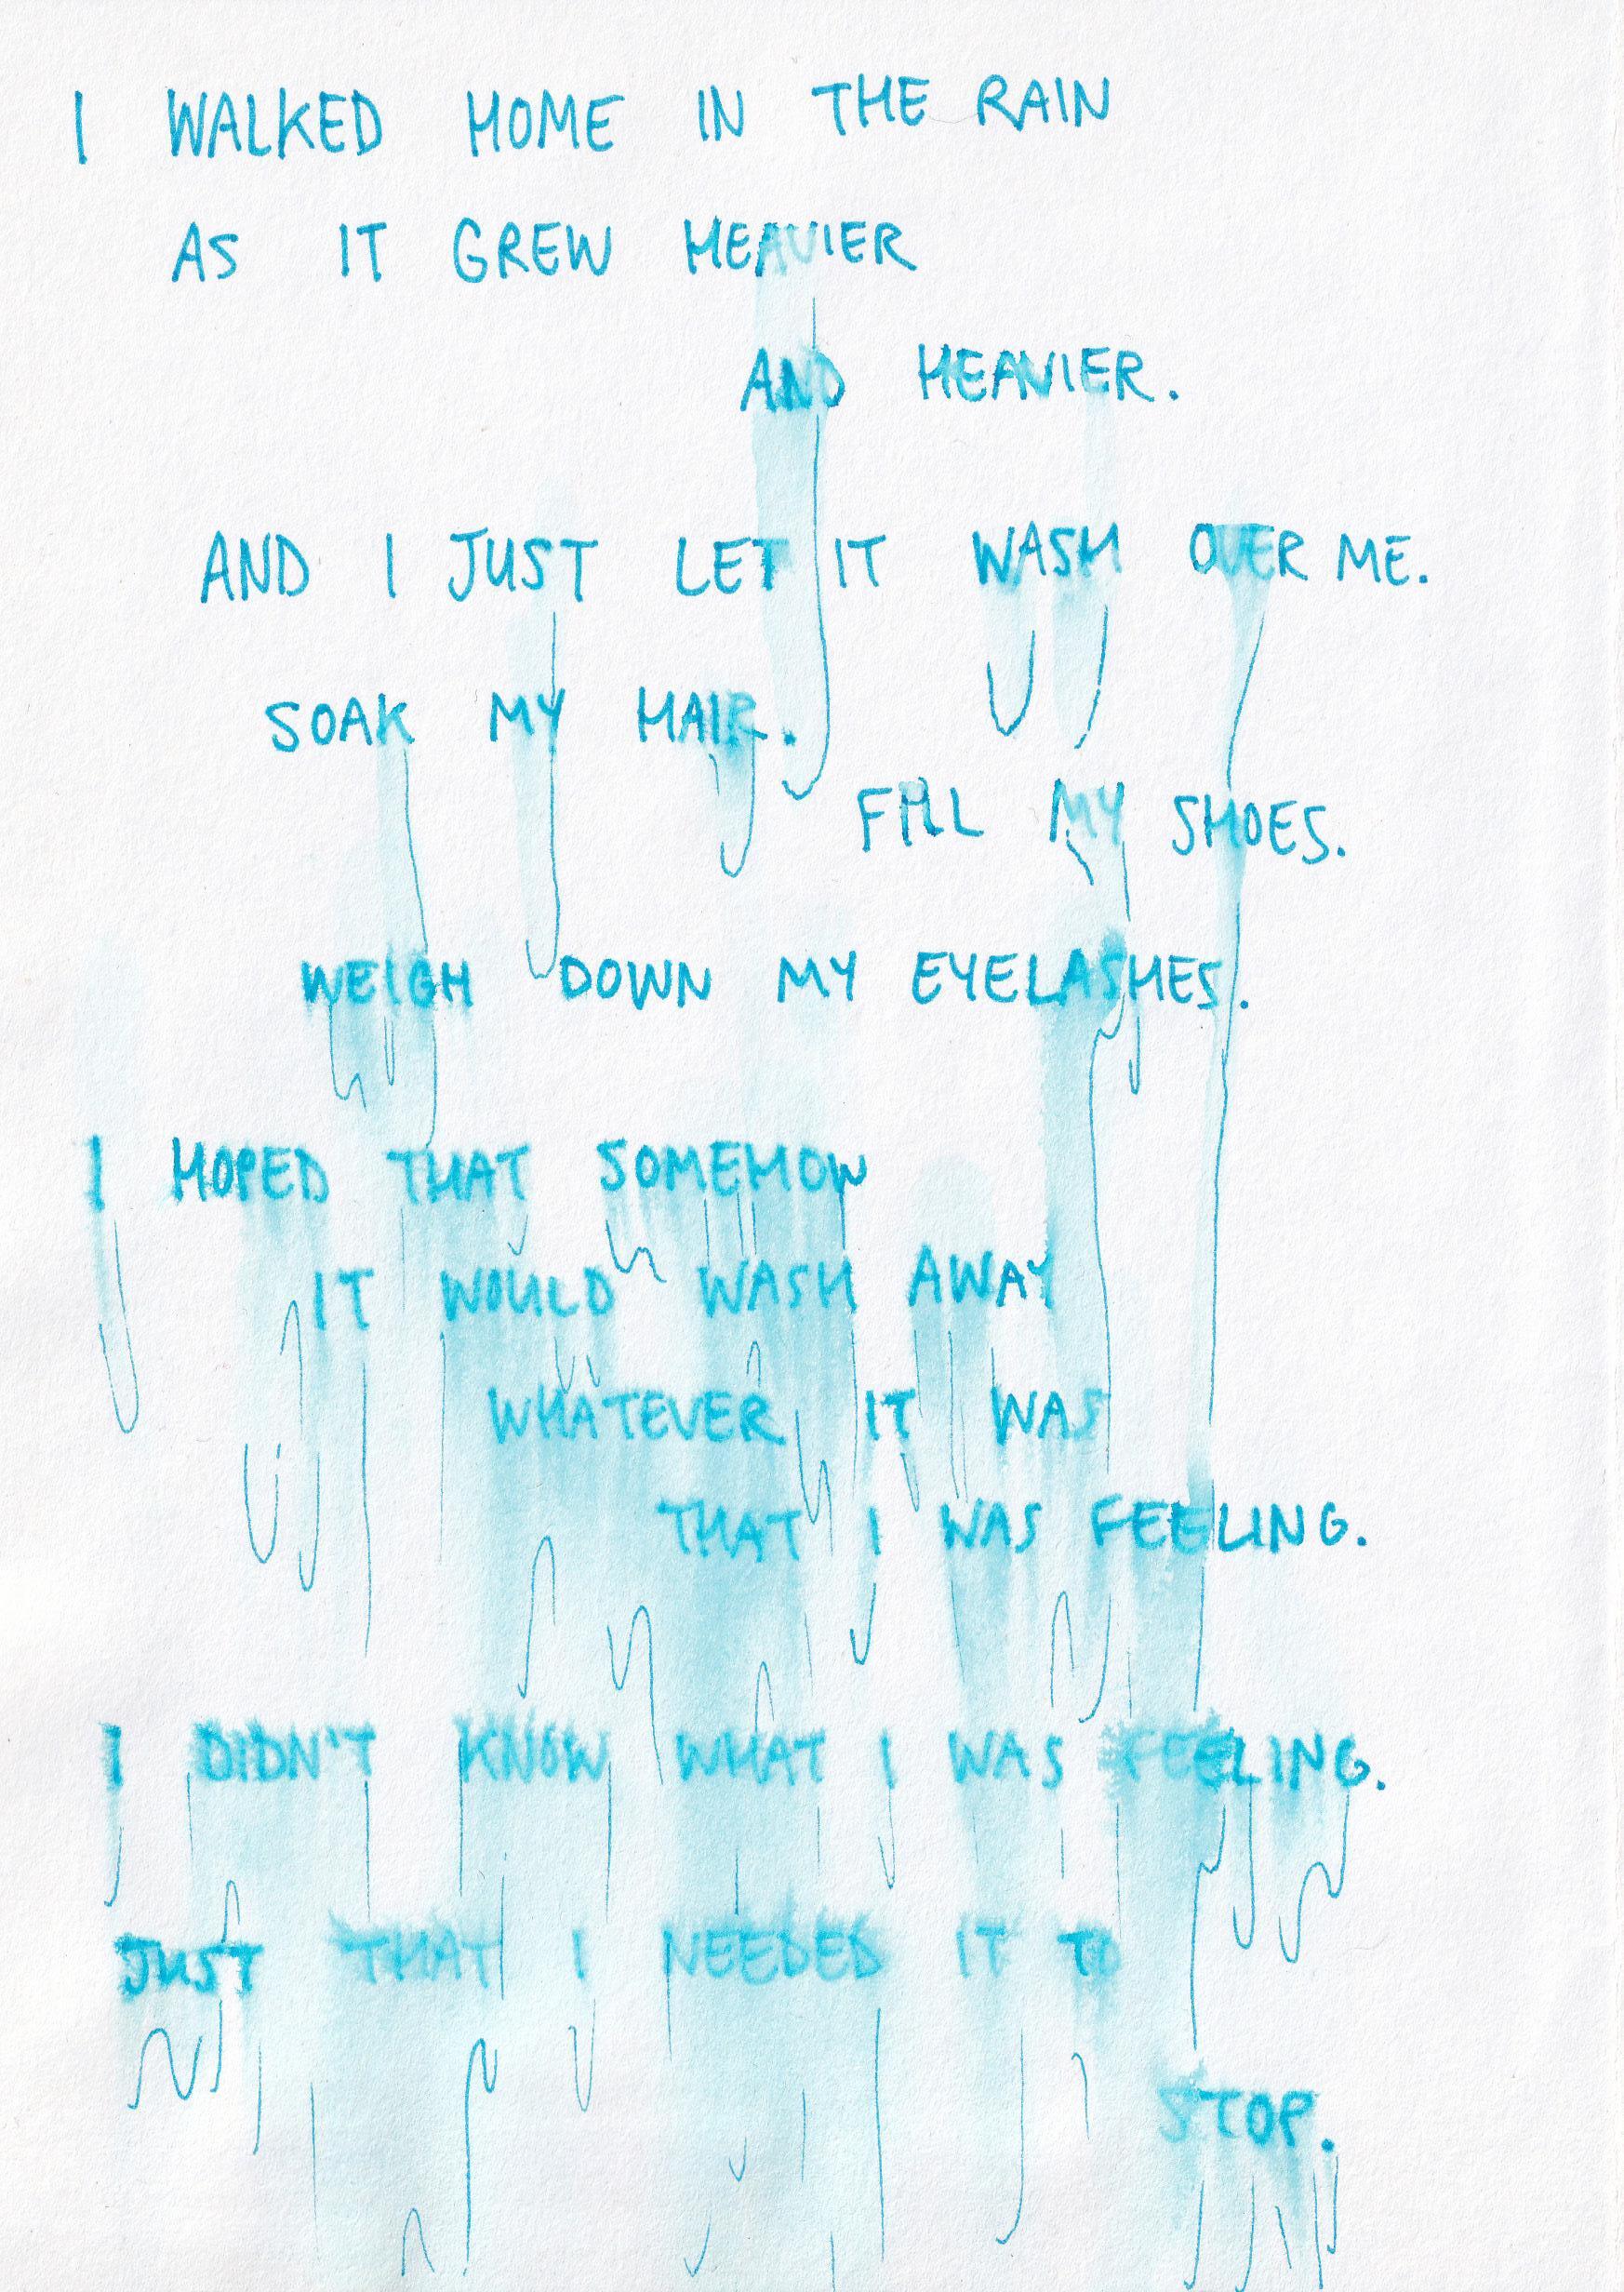 I WALKED HOME IN THE RAIN
AS IT GREW HEAVIER
AND HEAVIER.
AND I JUST LET IT WASH OVER ME.
SOAK MY HAIR.
FILL MY SHOES.
WEIGH DOWN MY EYELASHES.
I HOPED THAT SOMEHOW
IT WOULD WASH AWAY
WHATEVER IT WAS
THAT I WAS FEELING.
I DIDN'T KNOW WHAT I WAS FEELING.
JUST THAT I NEEDED IT TO
STOP.